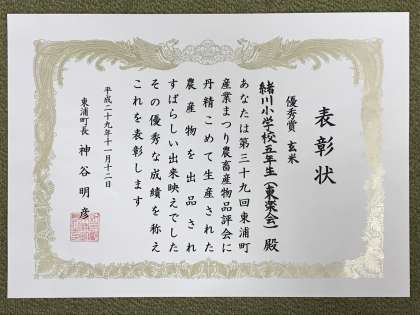 表彰状
優秀賞 玄米
緒川小学校五年生(東薬会)殿
あなたは第三十九回東浦町
産業まつり農畜産物品評会に
丹精こめて生産された
農産物を出品され
すばらしい出来映えでした
その優秀な成績を称え
これを表彰します
平成二十九年十一月十二日
東浦町長 神谷明彦